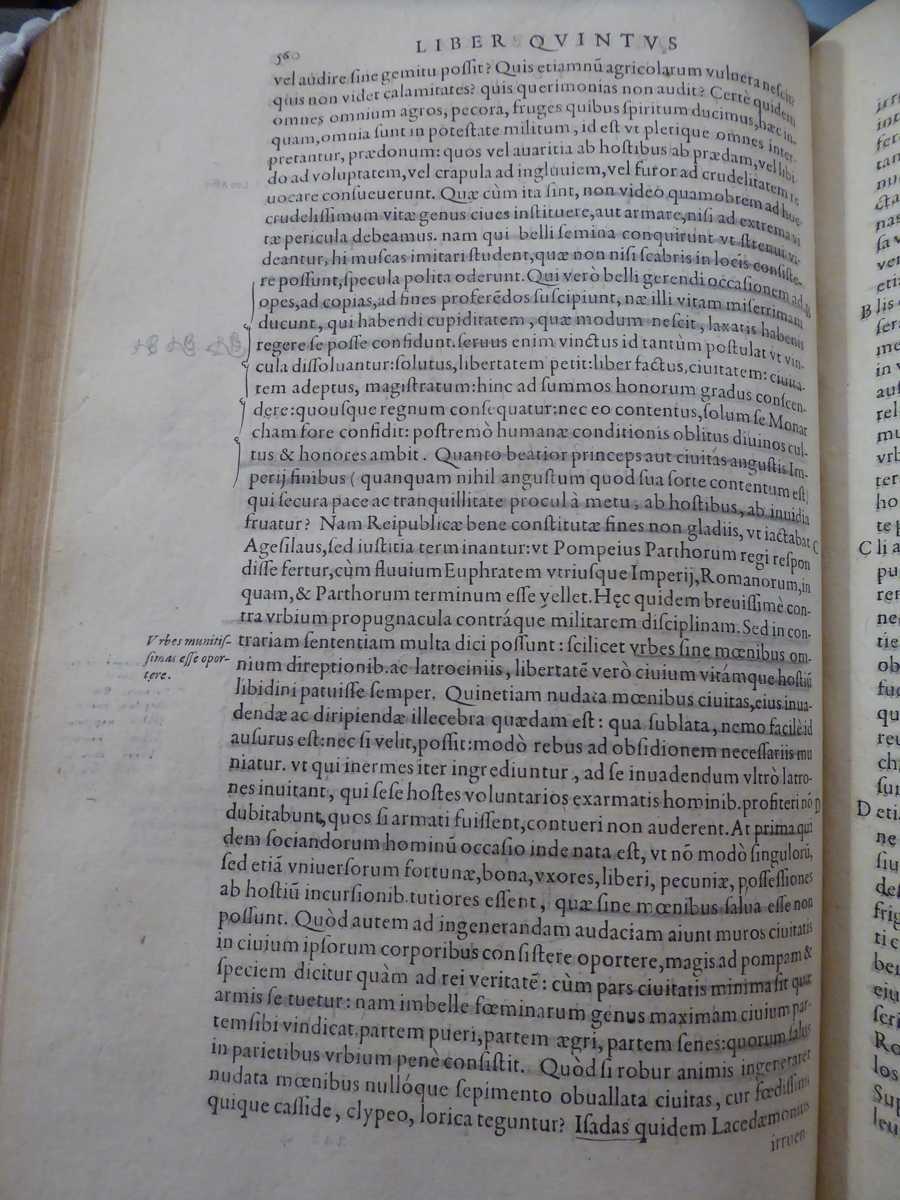 560 LIBER QVINTVS
vel audire sine gemitu possit? Quis etiamnū agricolarum vulnera nescit?
quis non videt calamitates? quis querimonias non audit? Certè quidem
omnes omnium agros, pecora, fruges quibus spiritum ducimus, hæc in-
quam, omnia sunt in potestate militum, id est vt plerique omnes inter-
pretantur, prædonum: quos vel auaritia ab hostibus ab prædam, vel libi
do ad voluptatem, vel crapula ad ingluuiem, vel furor ad crudelitatem re
uocare consueuerunt. Quæ cùm ita sint, non video quamobrem ad hoc
crudelissimum vitæ genus ciues instituere, aut armare, nisi ad extrema vi
tæ pericula debeamus. nam qui belli semina conquirunt vt strenui vi-
deantur, hi muscas imitari student, quæ non nisi scabris in locis consiste-
re possunt, specula polita oderunt. Qui verò belli gerendi occasionem ad B
opes, ad copias, ad fines proferēdos suscipiunt, næ illi vitam miserrimam
ducunt, qui habendi cupiditatem, quæ modum nescit, laxatis habenis
regere se posse confidunt. seruus enim vinctus id tantùm postulat vt vin-
cula dissoluantur: solutus, libertatem petit: liber factus, ciuitatem: ciuita-
tem adeptus, magistratum: hinc ad summos honorum gradus conscen-
dere: quousque regnum consequatur: nec eo contentus, solum se Monar
cham fore confidit: postremò humanæ conditionis oblitus diuinos cul-
tus & honores ambit. Quanto beatior princeps aut ciuitas angustis Im-
perij finibus (quanquam nihil angustum quod sua sorte contentum est)
qui secura pace ac tranquillitate procul à metu, ab hostibus, ab inuidia
fruatur? Nam Reipublicæ bene constitutæ fines non gladiis, vt iactabat C
Agesilaus, sed iustitia terminantur: vt Pompeius Parthorum regi respon
disse fertur, cùm fluuium Euphratem vtriusque Imperij, Romanorum, in
quam, & Parthorum terminum esse vellet. Hęc quidem breuissimè con-
tra vrbium propugnacula contráque militarem disciplinam. Sed in con-
Vrbes munitis-
simas esse opor-
tere.
trariam sententiam multa dici possunt: scilicet vrbes sine mœnibus om-
nium direptionib. ac latrociniis, libertatē verò ciuium vitámque hostiū
libidini patuisse semper. Quinetiam nudata mœnibus ciuitas, eius inua-
dendæ ac diripiendæ illecebra quædam est: qua sublata, nemo facilè id
ausurus est: nec si velit, possit: modò rebus ad obsidionem necessariis mu
niatur. vt qui inermes iter ingrediuntur, ad se inuadendum vltrò latro-
nes inuitant, qui sese hostes voluntarios exarmatis hominib. profiteri nō D
dubitabunt, quos si armati fuissent, contueri non auderent. At prima qui
dem sociandorum hominū occasio inde nata est, vt nō modò singulorū,
sed etiā vniuersorum fortunæ, bona, vxores, liberi, pecuniæ, possessiones
ab hostiū incursionib. tutiores essent, quæ sine mœnibus salua esse non
possunt. Quòd autem ad ingenerandam audaciam aiunt muros ciuitatis
in ciuium ipsorum corporibus consistere oportere, magis ad pompam &
speciem dicitur quàm ad rei veritatē: cùm pars ciuitatis minima sit quæ
armis se tuetur: nam imbelle fœminarum genus maximam ciuium par-
tem sibi vindicat. partem pueri, partem ægri, partem senes: quorum salus
in parietibus vrbium penè consistit. Quòd si robur animis ingeneraret
nudata mœnibus nullóque sepimento obuallata ciuitas, cur fœdissimi
quique casside, clypeo, lorica teguntur? Isadas quidem Lacedæmonius
irruen-